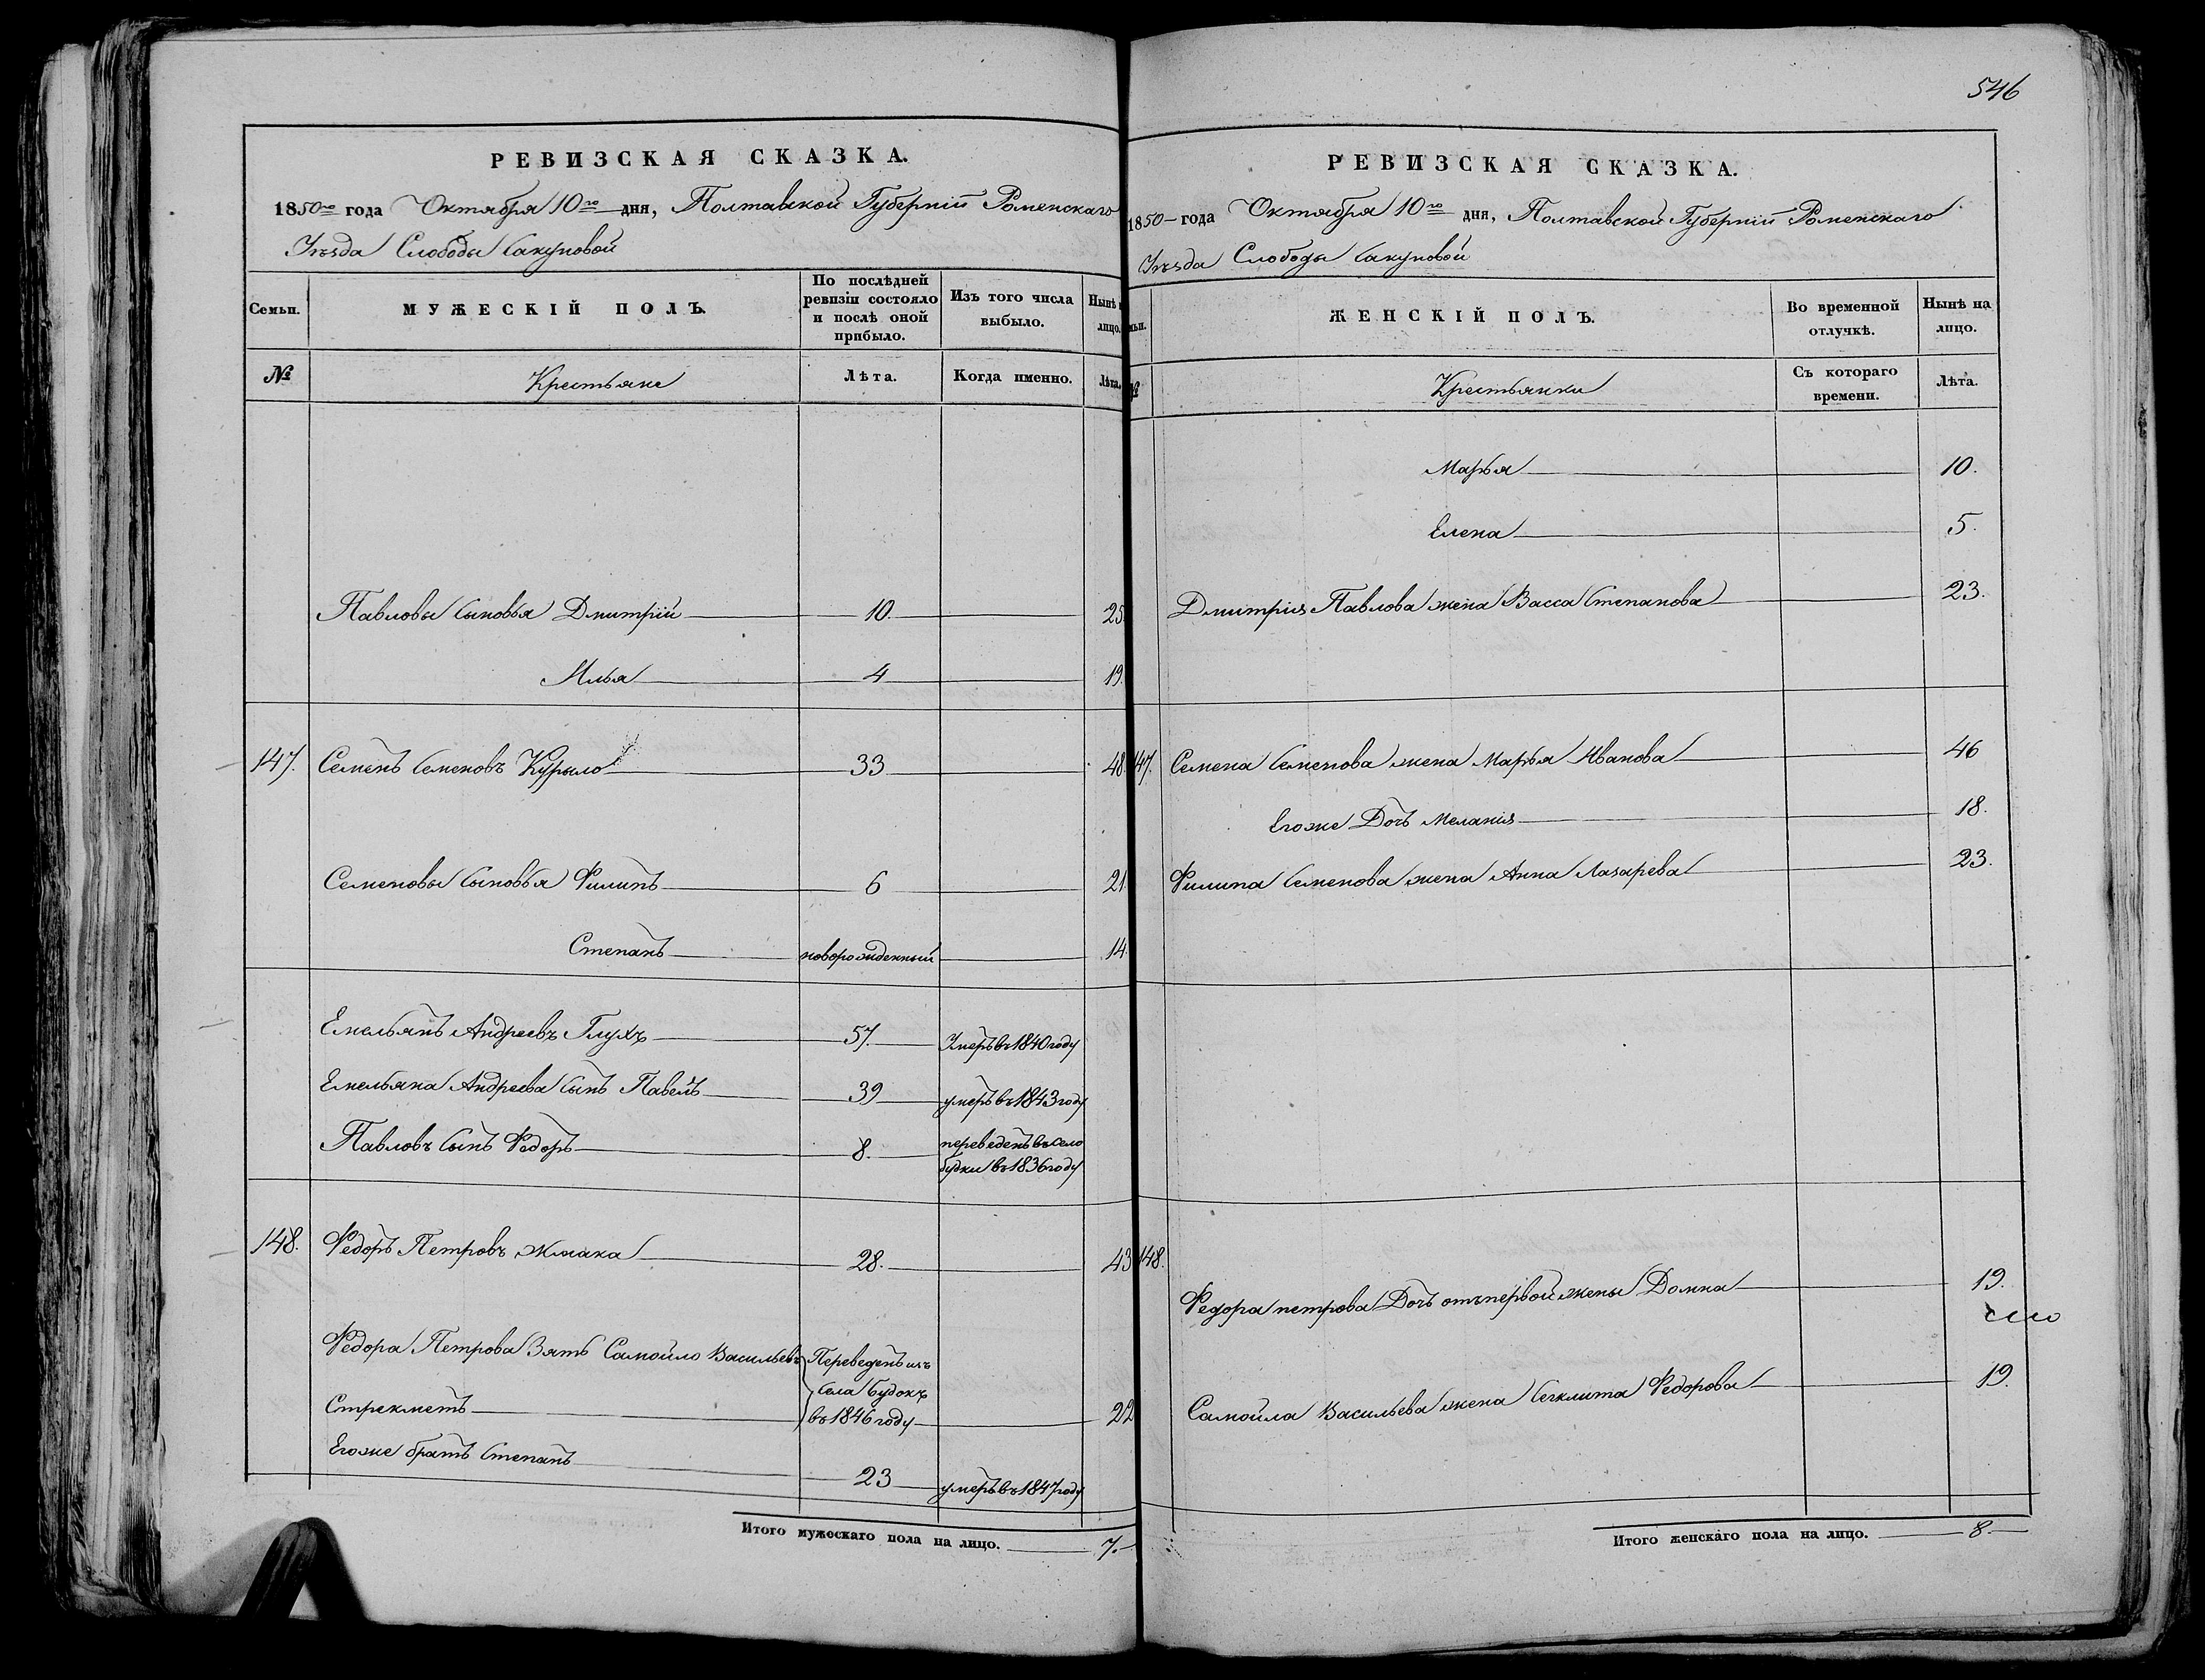 РЕВИЗСКАЯ СКАЗКА.
1850го года Октября 10го дня, Полтавской Губерніи Роменскаго
Уѣзда Слободы Сакуновой
Семьи. МУЖЕСКІЙ ПОЛЪ. По послѣдней ревизіи состояло и послѣ оной прибыло. Изъ того числа выбыло. Нынѣ лицо.
№ Крестьяне Лѣта. Когда именно. Лѣта.
Павловы сыновья Дмитрій 10. 25.
Илья 4 19.
147. Семенъ Семеновъ Курыло 33 48.
Семеновы сыновья Филипъ 6 21.
Степанъ новорожденный 14.
Емельянъ Андреевъ Глухъ 57. Умеръ въ 1840 году
Емельяна Андреева сынъ Павелъ 39 умеръ въ 1843 году
Павловъ сынъ Федоръ 8. переведенъ въ село
будки въ 1836 году
148. Федоръ Петровъ Жмака 28. 43
Федора Петрова Зять Самойло Васильевъ Переведенъ изъ
села будокъ
Стрекметь въ 1846 году 22
Егоже братъ Степанъ 23 умеръ въ 1847 году
Итого мужескаго пола на лицо. 7.
546
РЕВИЗСКАЯ СКАЗКА.
1850 года Октября 10го дня, Полтавской Губерніи Роменскаго
Уѣзда Слободы Сакуновой
ЖЕНСКІЙ ПОЛЪ. Во временной отлучкѣ. Нынѣ на лицо.
№ Крестьянки Съ котораго времени. Лѣта.
Марья 10.
Елена 5.
Дмитрія Павлова жена Васса Степанова 23.
147. Семена Семенова жена Марья Иванова 46
Егоже Дочь Меланія 18.
Филипа Семенова жена Анна Лазарева 23.
148.
Федора петрова Дочь отъ первой жены Домна 19.
Самойла Васильева жена Секлита Федорова 19.
Итого женскаго пола на лицо. 8.